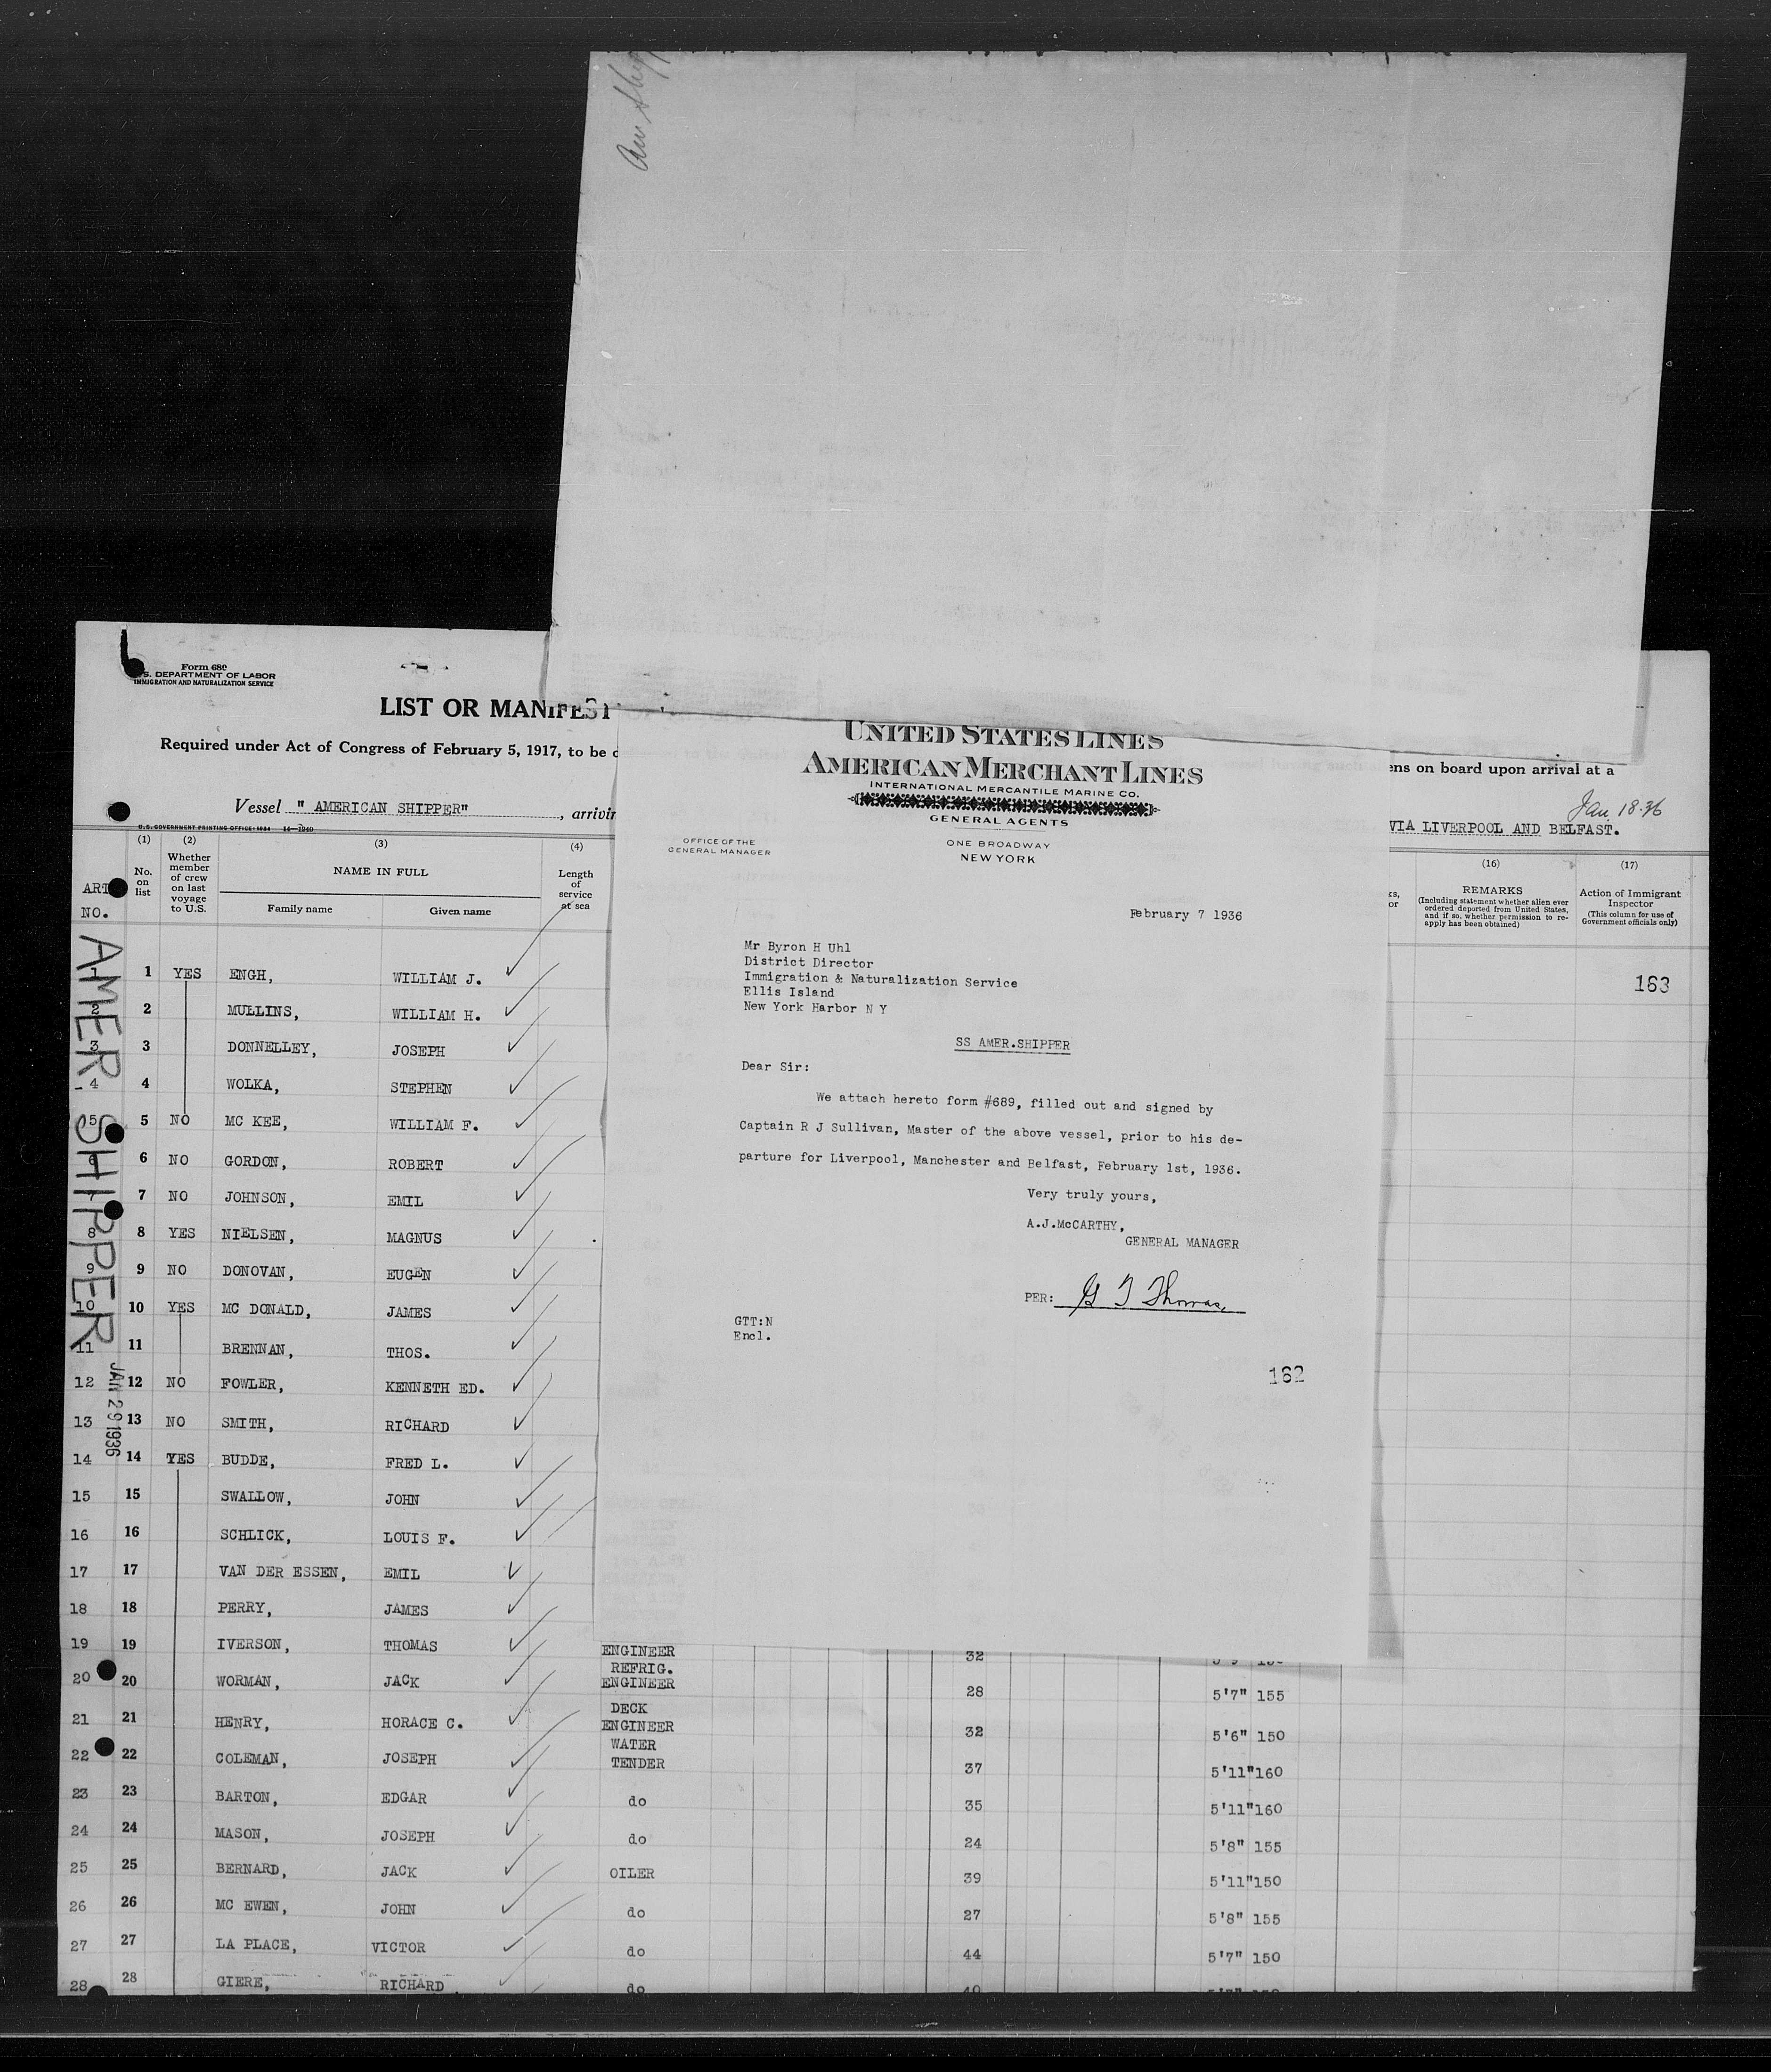 Am Ship
Form 680
U.S. DEPARTMENT OF LABOR
IMMIGRATION AND NATURALIZATION SERVICE
LIST OR MANIFEST
Required under Act of Congress of February 5, 1917, to be
ens on board upon arrival at a
Vessel " AMERICAN SHIPPER" , arrivin
Jan. 18-36
VIA LIVERPOOL AND BELFAST.
U.S. GOVERNMENT PRINTING OFFICE: 1934 14—1240
(1) (2) (3) (4) (16) (17)
ART NO.
No. on list
Whether member of crew on last voyage to U.S.
NAME IN FULL
Family name Given name
Length of service at sea
REMARKS
(Including statement whether alien ever ordered deported from United States, and if so, whether permission to reapply has been obtained)
Action of Immigrant Inspector
(This column for use of Government officials only)
163
AMER SHIPPER
JAN 29 1936
1 1 YES ENGH, WILLIAM J.
2 2 MULLINS, WILLIAM H.
3 3 DONNELLEY, JOSEPH
4 4 WOLKA, STEPHEN
5 5 NO MC KEE, WILLIAM F.
6 6 NO GORDON, ROBERT
7 7 NO JOHNSON, EMIL
8 8 YES NIELSEN, MAGNUS
9 9 NO DONOVAN, EUGEN
10 10 YES MC DONALD, JAMES
11 11 BRENNAN, THOS.
12 12 NO FOWLER, KENNETH ED.
13 13 NO SMITH, RICHARD
14 14 YES BUDDE, FRED L.
15 15 SWALLOW, JOHN
16 16 SCHLICK, LOUIS F.
17 17 VAN DER ESSEN, EMIL
18 18 PERRY, JAMES
19 19 IVERSON, THOMAS ENGINEER 32
20 20 WORMAN, JACK REFRIG. ENGINEER 28 5'7" 155
21 21 HENRY, HORACE C. DECK ENGINEER 32 5'6" 150
22 22 COLEMAN, JOSEPH WATER TENDER 37 5'11" 160
23 23 BARTON, EDGAR do 35 5'11" 160
24 24 MASON, JOSEPH do 24 5'8" 155
25 25 BERNARD, JACK OILER 39 5'11" 150
26 26 MC EWEN, JOHN do 27 5'8" 155
27 27 LA PLACE, VICTOR do 44 5'7" 150
28 28 GIERE, RICHARD do 40
UNITED STATES LINES
AMERICAN MERCHANT LINES
INTERNATIONAL MERCANTILE MARINE CO.
GENERAL AGENTS
OFFICE OF THE
GENERAL MANAGER
ONE BROADWAY
NEW YORK
February 7 1936
Mr Byron H Uhl
District Director
Immigration & Naturalization Service
Ellis Island
New York Harbor N Y
SS AMER.SHIPPER
Dear Sir:
We attach hereto form #689, filled out and signed by
Captain R J Sullivan, Master of the above vessel, prior to his de-
parture for Liverpool, Manchester and Belfast, February 1st, 1936.
Very truly yours,
A.J.McCARTHY,
GENERAL MANAGER
PER: G T Thomas
GTT:N
Encl.
162